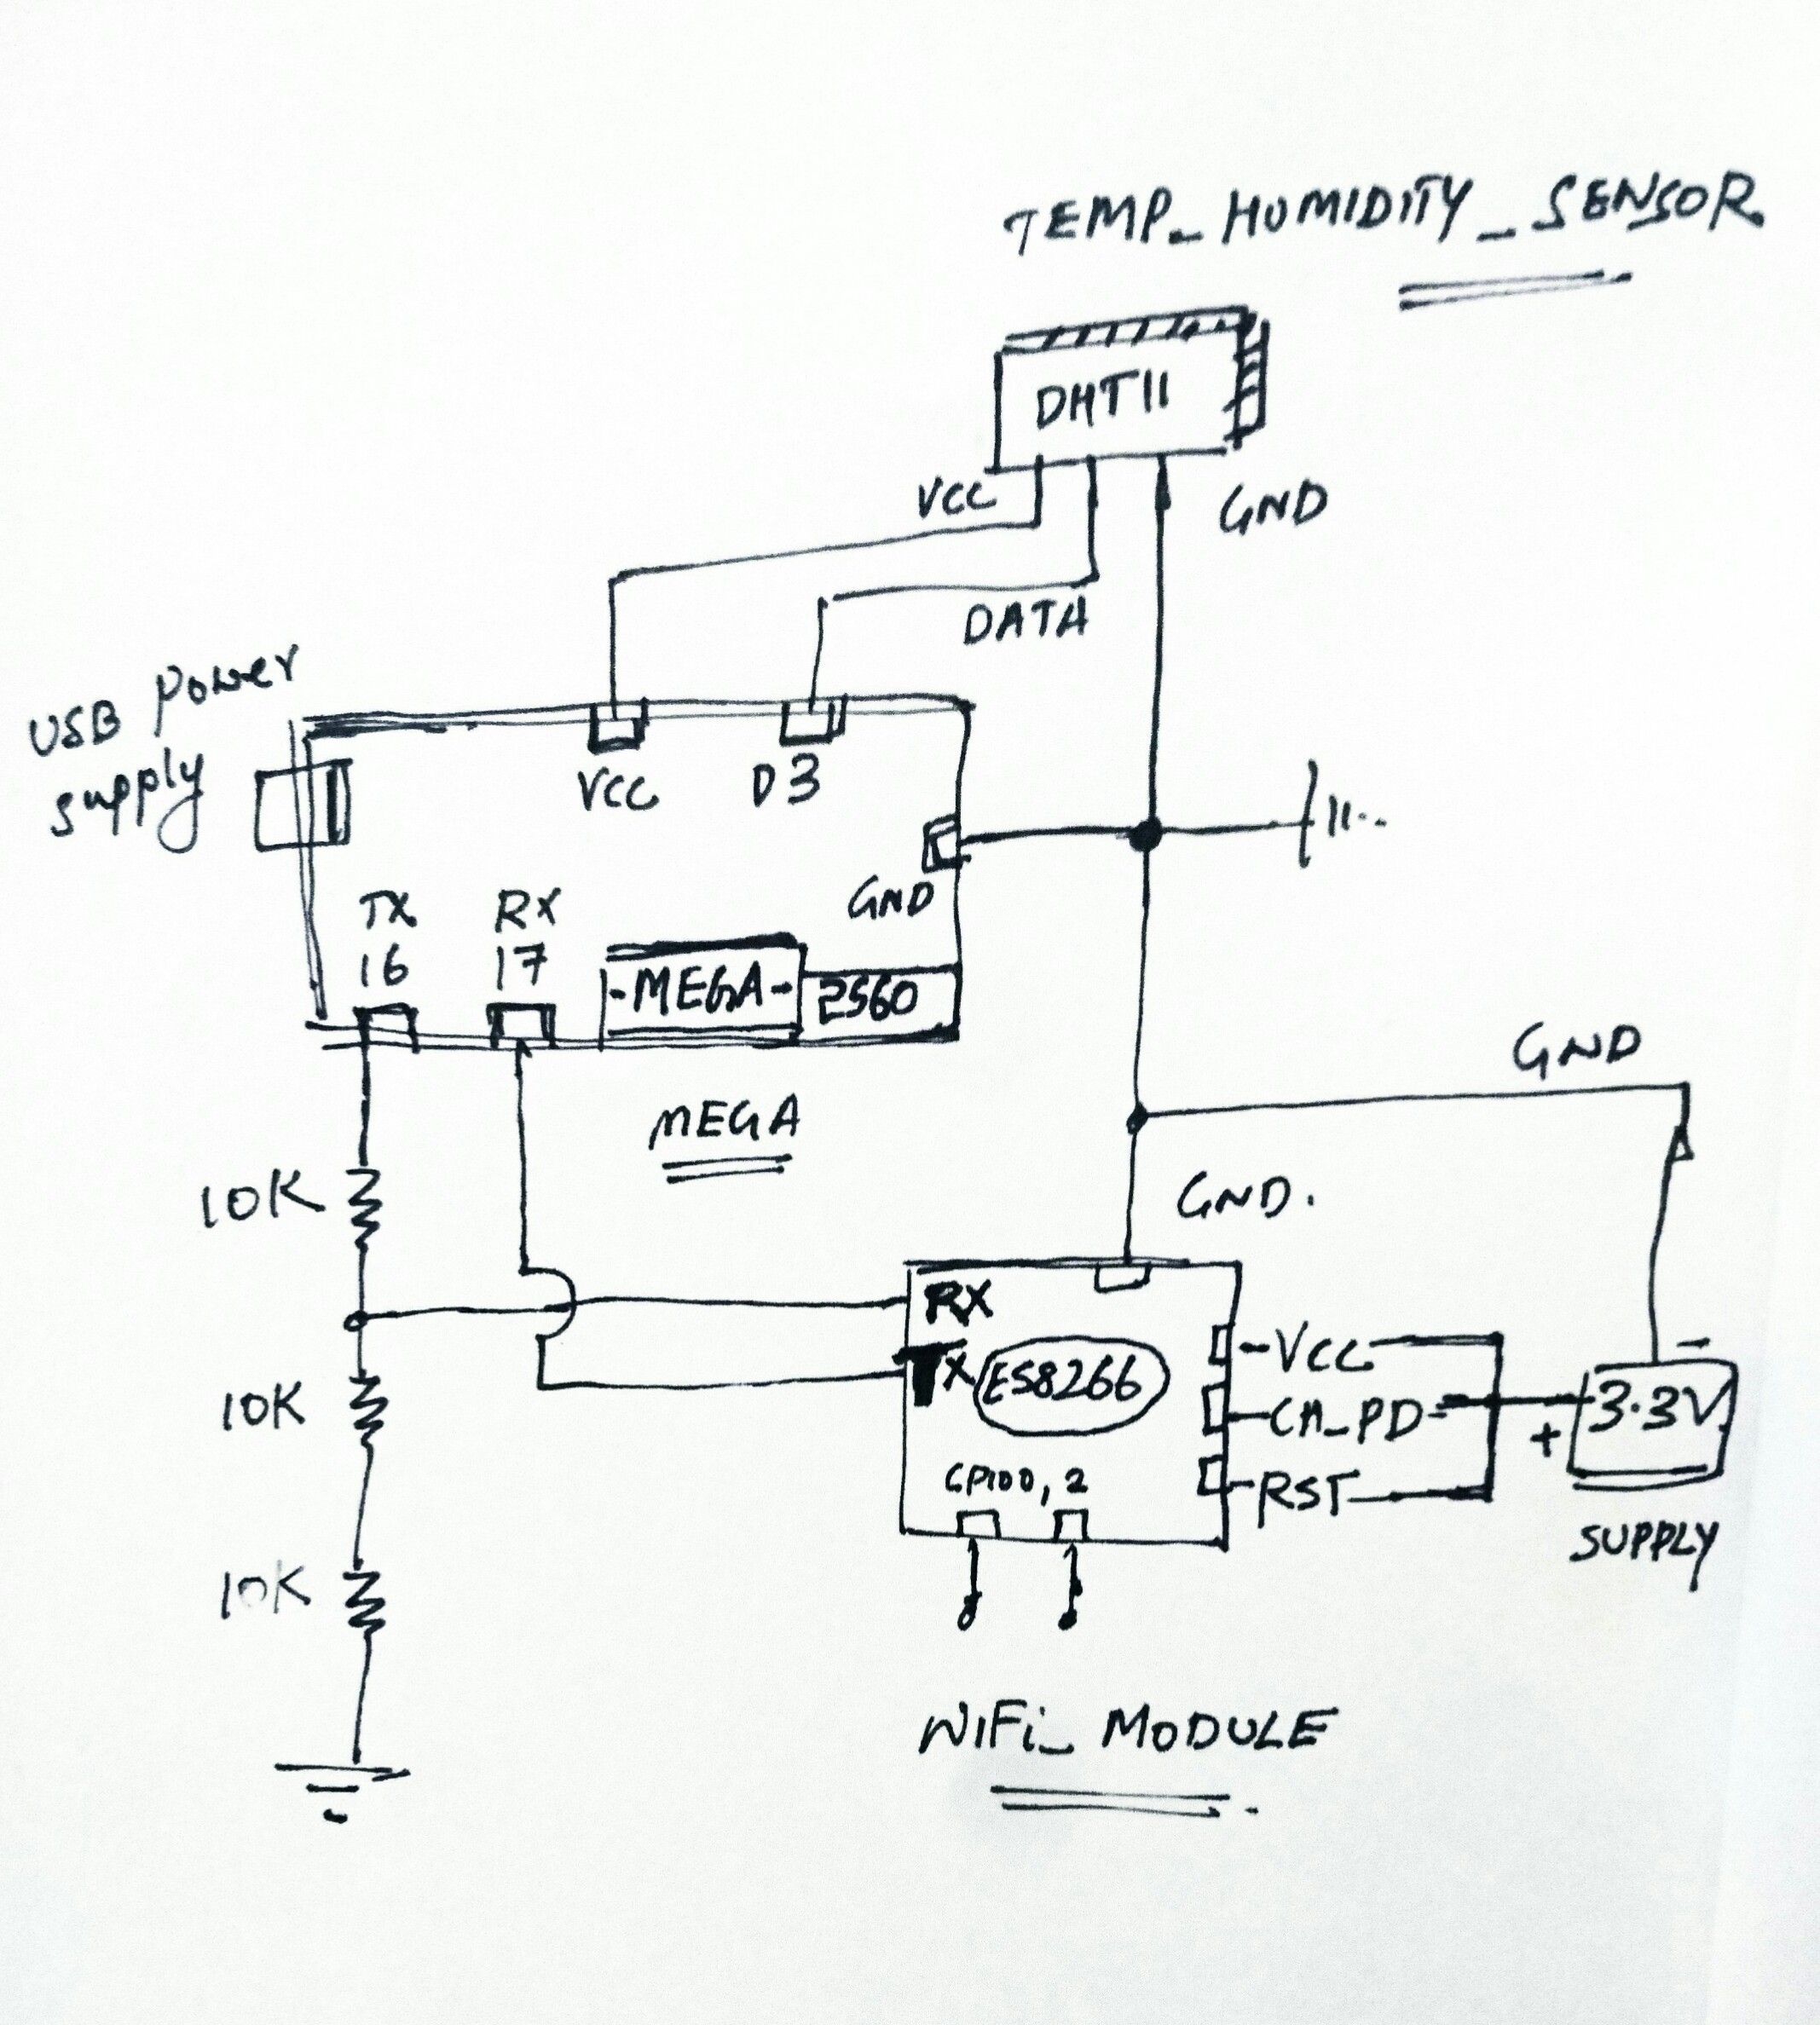 TEMP_HUMIDITY_SENSOR
DHT11
VCC
GND
DATA
USB Power
supply
VCC
D3
GND
TX
16
RX
17
-MEGA-
2560
MEGA
GND
10K
GND.
RX
TX
ES8266
-VCC
CH_PD-
-RST
3.3V
-
+
SUPPLY
10K
GPIO0, 2
10K
WiFi_MODULE